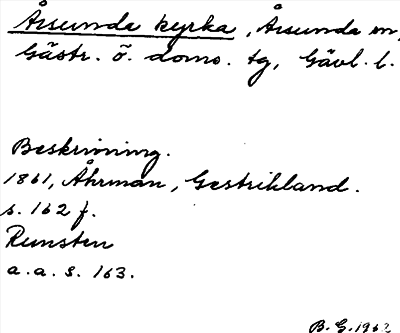 Årsunda kyrka, Årsunda sn,
Gästr. ö. doms. tg, Gävl. l.
Beskrivning.
1861, Åhrman, Gestrikland.
s. 162 f.
Runsten
a. a. s. 163.
B. G. 1962